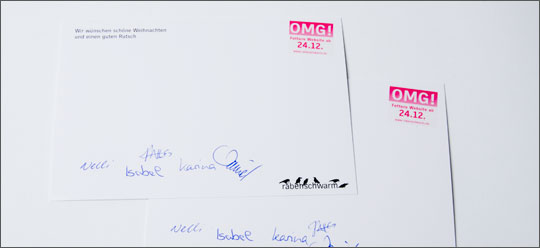 Wir wünschen schöne Weihnachten
und einen guten Rutsch
OMG!
Fettere Website ab
24.12.
Nelli Isabel Karina Daniel
rabenschwarm
OMG!
Fettere Website ab
24.12.
Nelli Isabel Karina